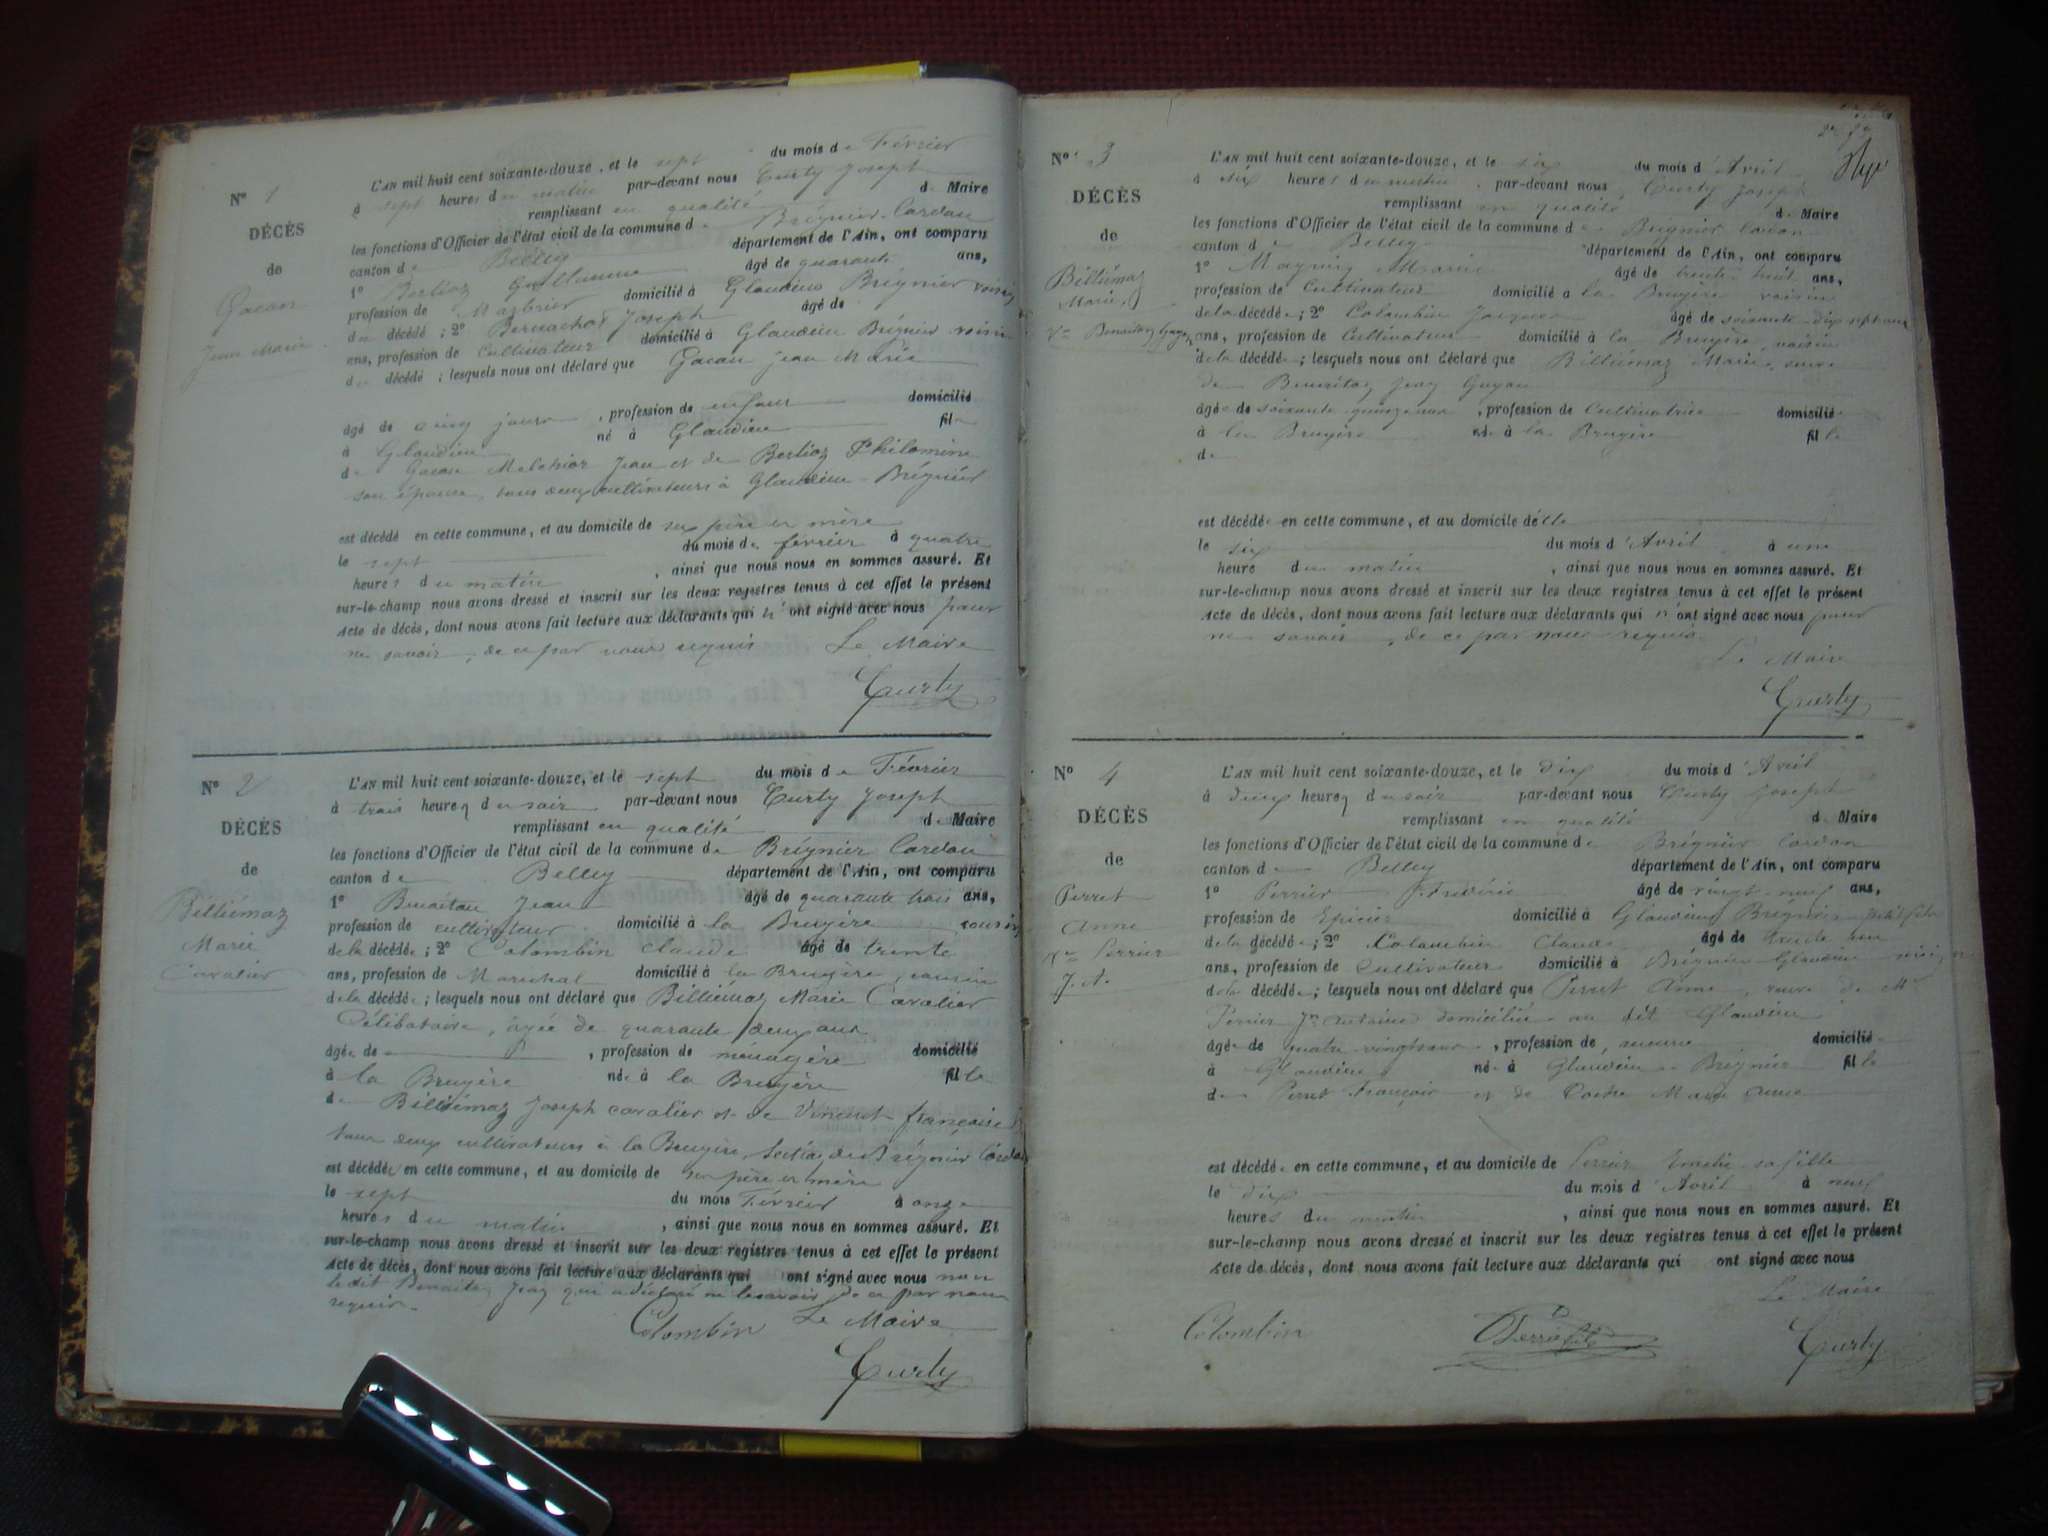 N° 1
DÉCÈS
de
Gacon
Jean Marie
L'AN mil huit cent soixante-douze, et le sept du mois de Février
à sept heures du matin par-devant nous Curty Joseph
remplissant en qualité de Maire
les fonctions d'Officier de l'état civil de la commune de Brégnier-Cordon
canton de Belley département de l'Ain, ont comparu
1° Berlioz Guillaume âgé de quarante ans,
profession de domicilié à Glandieu Brégnier voisin
du décédé ; 2° Joseph âgé de
ans, profession de Cultivateur domicilié à Glandieu Brégnier voisin
du décédé ; lesquels nous ont déclaré que Gacon Jean Marie
âgé de cinq jours, profession de enfant domicilié
à Glandieu né à Glandieu fils
de Gacon Melchior Jean et de Berlioz Philomène
son épouse, tous deux cultivateurs à Glandieu - Brégnier
est décédé en cette commune, et au domicile de ses père et mère
le sept du mois de février à quatre
heures du matin, ainsi que nous nous en sommes assuré. Et
sur-le-champ nous avons dressé et inscrit sur les deux registres tenus à cet effet le présent
Acte de décès, dont nous avons fait lecture aux déclarants qui n'ont signé avec nous pour
ne savoir, de ce par nous requis Le Maire
Curty
N° 2
DÉCÈS
de
Billiémaz
Marie
Cavalier
L'AN mil huit cent soixante-douze, et le sept du mois de Février
à trois heures du soir par-devant nous Curty Joseph
remplissant en qualité de Maire
les fonctions d'Officier de l'état civil de la commune de Brégnier Cordon
canton de Belley département de l'Ain, ont comparu
1° Benoiton Jean âgé de quarante trois ans,
profession de cultivateur domicilié à la Bruyère cousin
de la décédée ; 2° Colombin Claude âgé de trente
ans, profession de Maréchal domicilié à la Bruyère, cousin
de la décédée ; lesquels nous ont déclaré que Billiémaz Marie Cavalier
Célibataire, âgée de quarante deux ans
âgée de, profession de ménagère domicilié
à la Bruyère née à la Bruyère fille
de Billiémaz Joseph cavalier et de Vincent françoise
tous deux cultivateurs à la Bruyère, Section de Brégnier Cordon
est décédée en cette commune, et au domicile de ses père et mère
le sept du mois Février à onze
heures du matin, ainsi que nous nous en sommes assuré. Et
sur-le-champ nous avons dressé et inscrit sur les deux registres tenus à cet effet le présent
Acte de décès, dont nous avons fait lecture aux déclarants qui ont signé avec nous non
le dit Jean qui a déclaré ne le savoir de ce par nous
requis.
Colombin Le Maire
Curty
N° 3
DÉCÈS
de
Billiémaz
Marie
Vve Benoiton
L'AN mil huit cent soixante-douze, et le six du mois d'Avril
à six heures du matin, par-devant nous Curty Joseph
remplissant en qualité de Maire
les fonctions d'Officier de l'état civil de la commune de Brégnier Cordon
canton de Belley département de l'Ain, ont comparu
1° âgé de trente huit ans,
profession de Cultivateur domicilié à la Bruyère voisin
de la décédée ; 2° Colombin Jacques âgé de soixante-dix sept ans
ans, profession de Cultivateur domicilié à la Bruyère, voisin
de la décédée ; lesquels nous ont déclaré que Billiémaz Marie, veuve
de Benoiton Jean
âgée de soixante quinze ans, profession de Cultivatrice domicilié
à la Bruyère née à la Bruyère fille
de
est décédée en cette commune, et au domicile d'elle
le six du mois d'Avril à une
heure du matin, ainsi que nous nous en sommes assuré. Et
sur-le-champ nous avons dressé et inscrit sur les deux registres tenus à cet effet le présent
Acte de décès, dont nous avons fait lecture aux déclarants qui n'ont signé avec nous pour
ne savoir, de ce par nous requis
Le Maire
Curty
N° 4
DÉCÈS
de
Perret
Anne
Vve Perrier
J. A.
L'AN mil huit cent soixante-douze, et le dix du mois d'Avril
à deux heures du soir par-devant nous Curty Joseph
remplissant en qualité de Maire
les fonctions d'Officier de l'état civil de la commune de Brégnier Cordon
canton de Belley département de l'Ain, ont comparu
1° Perrier Frédéric âgé de vingt-neuf ans,
profession de Epicier domicilié à Glandieu Brégnier petit fils
de la décédée ; 2° Colombin Claude âgé de trente
ans, profession de Cultivateur domicilié à Brégnier Glandieu voisin
de la décédée ; lesquels nous ont déclaré que Perret Anne, veuve de Mr
Perrier Jn Antoine domiciliée au dit Glandieu
âgée de quatre-vingts ans, profession de aucune domicilié
à Glandieu née à Glandieu - Brégnier fille
de Perret François et de Marie Anne
est décédée en cette commune, et au domicile de Perrier sa fille
le dix du mois d'Avril à neuf
heures du matin, ainsi que nous nous en sommes assuré. Et
sur-le-champ nous avons dressé et inscrit sur les deux registres tenus à cet effet le présent
Acte de décès, dont nous avons fait lecture aux déclarants qui ont signé avec nous
Le Maire
Colombin Perrier fils Curty